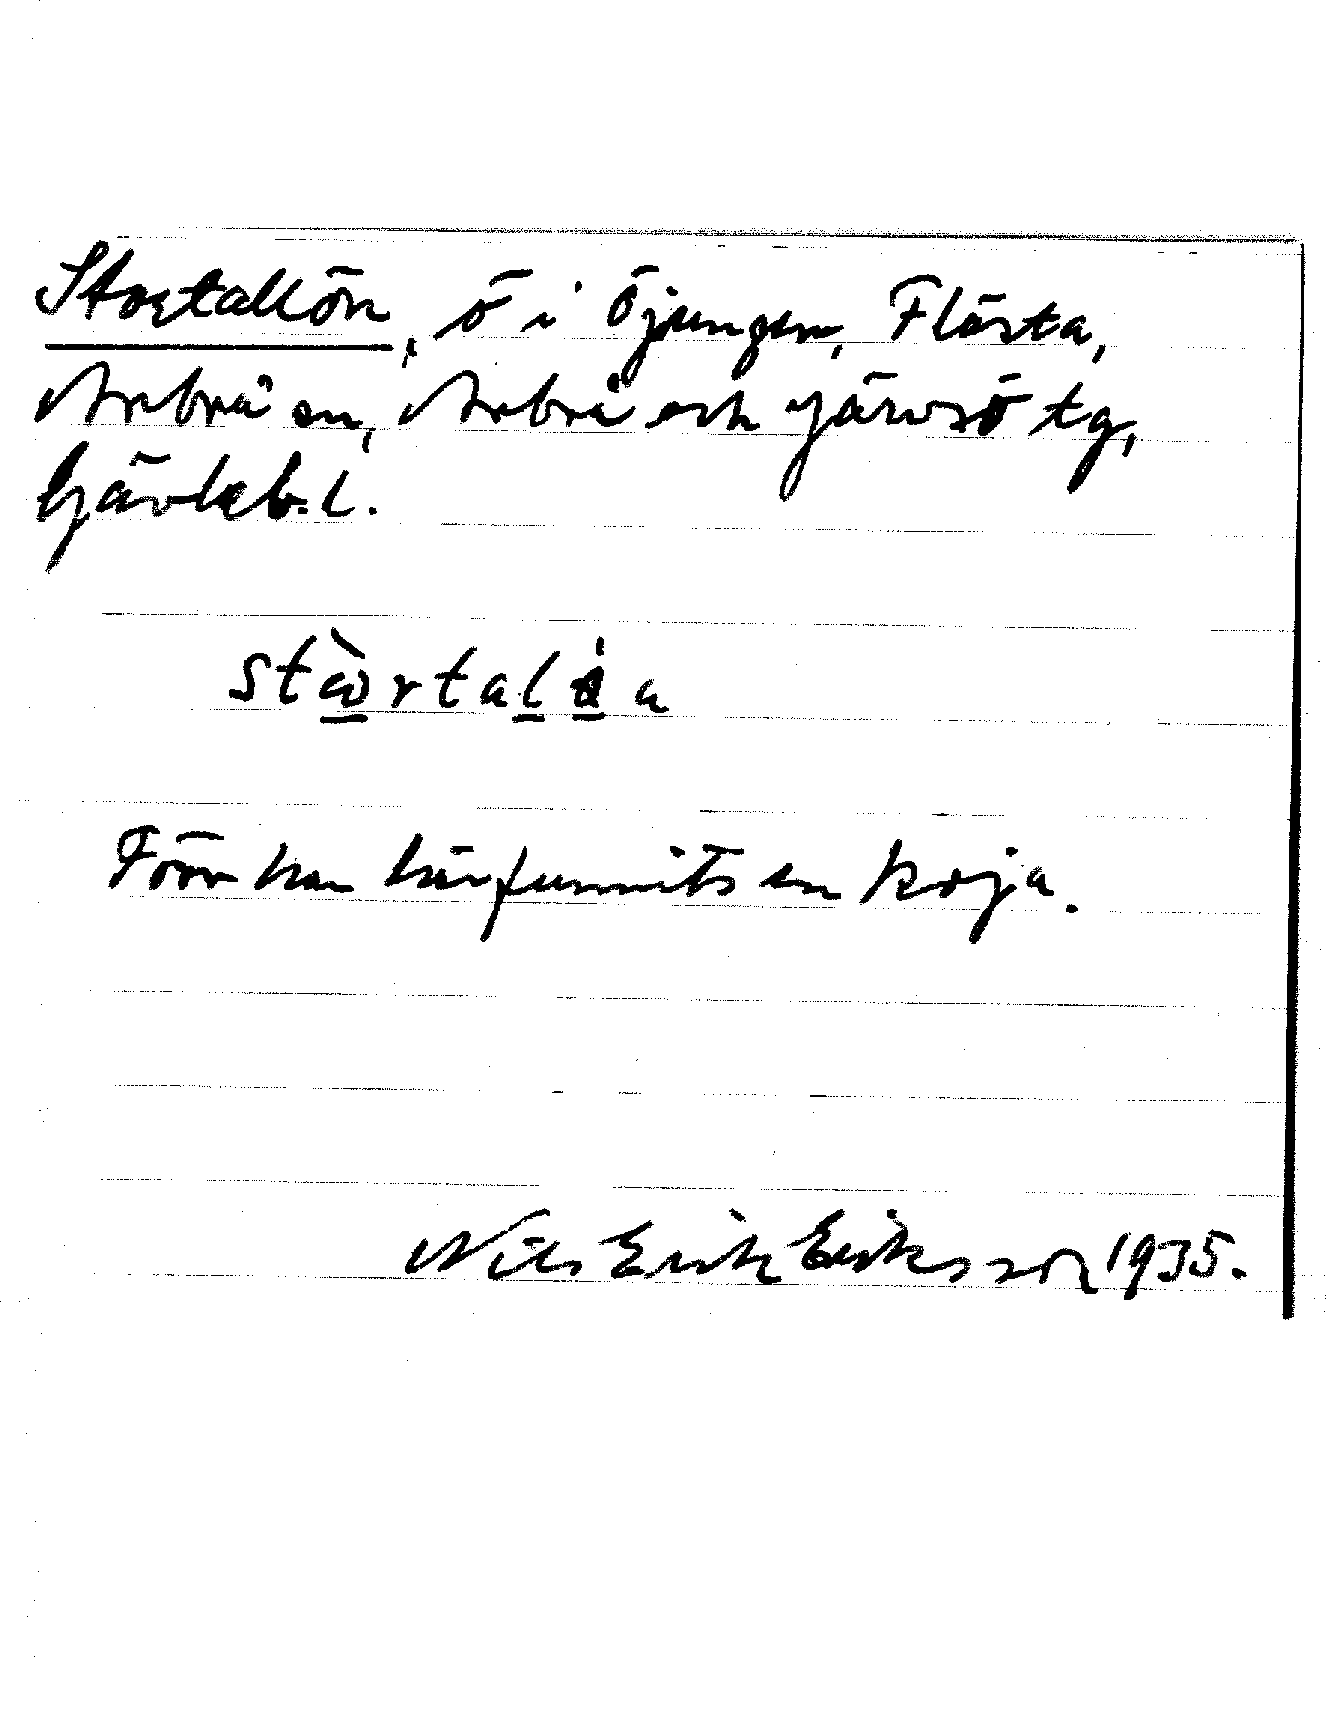 Stortallön, ö i Öjungen, Flästa,
Arbrå sn, Arbrå och Järvsö tg,
Gävleb. l.
Förr har här funnits en koja.
Nils Erik Eriksson 1935.